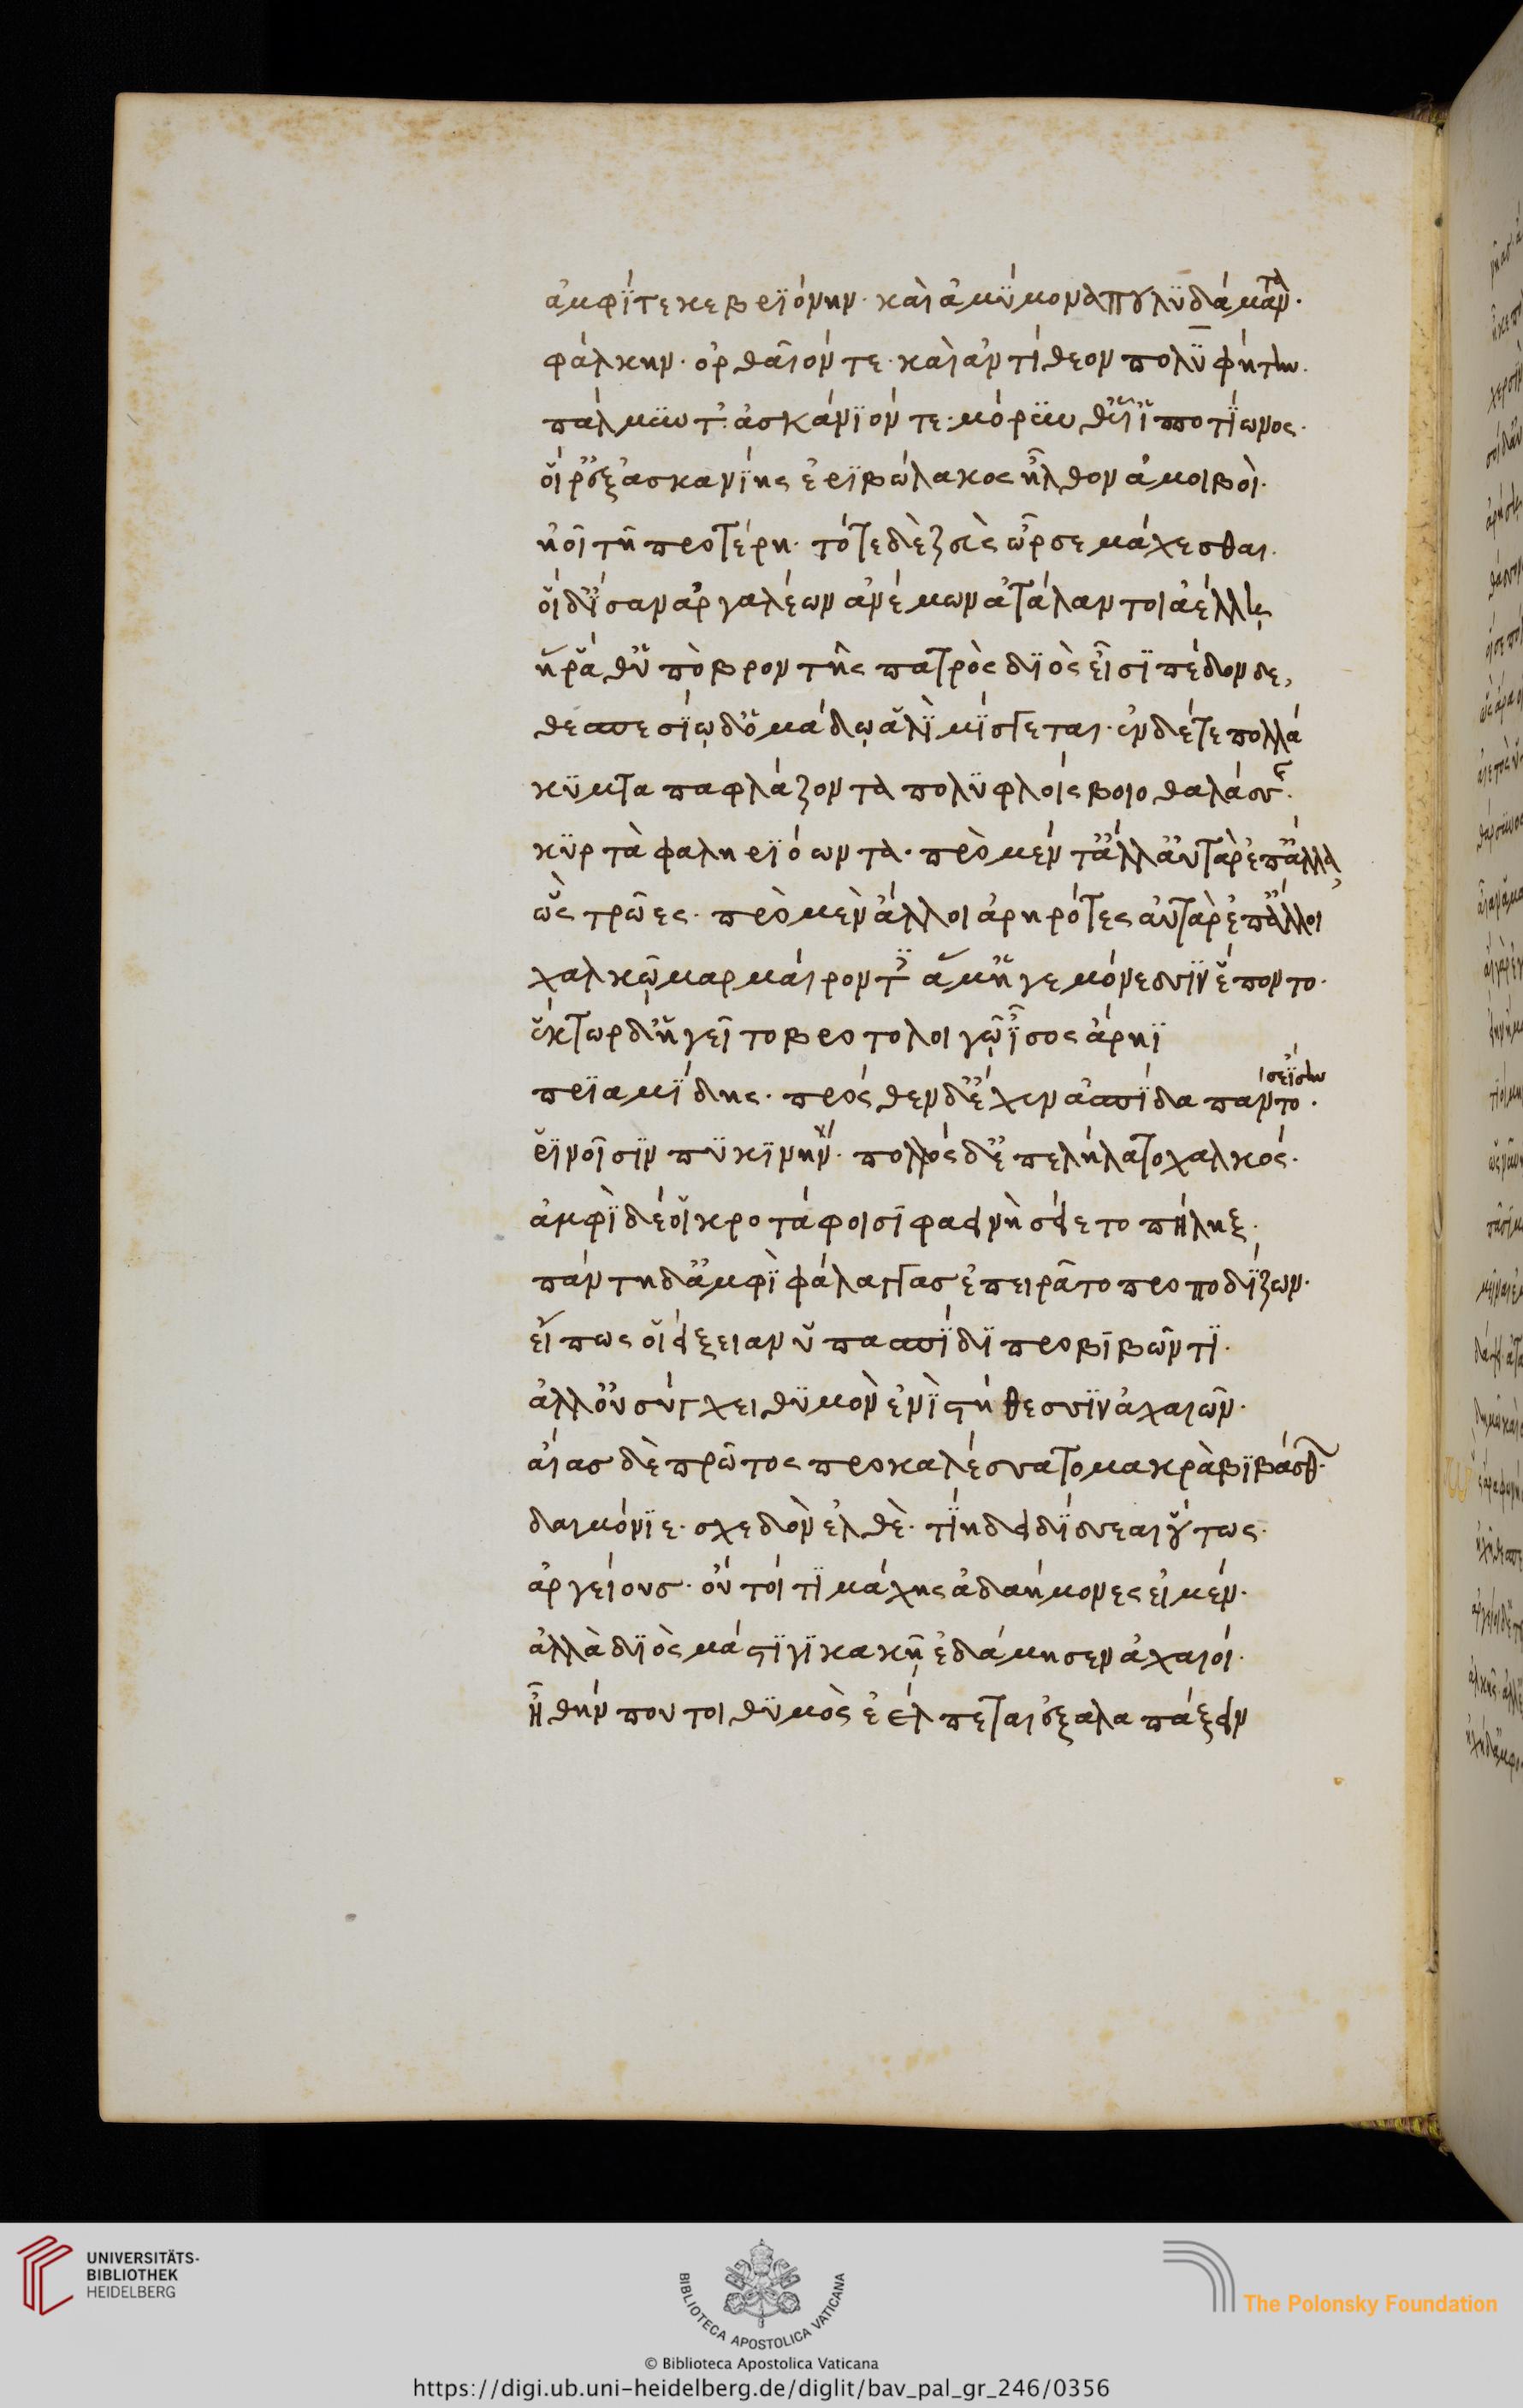 ἀμφί τε κεβριόνην· καὶ ἀμύμονα πουλυδάμαντα·
φάλκην· ὀρθαῖόν τε· καὶ ἀντίθεον πολυφήτην·
πάλμυν τ' ἀσκάνιόν τε· μόρυν θ' υἷ' ἱπποτίωνος·
οἵ ῥ' ἐξ ἀσκανίης ἐριβώλακος ἦλθον ἀμοιβοὶ·
ἠοῖ τῇ προτέρῃ· τότε δὲ ζεὺς ὦρσε μάχεσθαι·
οἱ δ' ἴσαν ἀργαλέων ἀνέμων ἀτάλαντοι ἀέλλῃ
ἥ ῥά θ' ὑπὸ βροντῆς πατρὸς διὸς εἶσι πέδονδε,
θεσπεσίῳ δ' ὁμάδῳ ἁλὶ μίσγεται· ἐν δέ τε πολλά
κύματα παφλάζοντα πολυφλοίσβοιο θαλάσσης·
κυρτὰ φαληριόωντα· πρὸ μέν τ' ἄλλ' αὐτὰρ ἐπ' ἄλλα,
ὣς τρῶες· πρὸ μὲν ἄλλοι ἀρηρότες αὐτὰρ ἐπ' ἄλλοι
χαλκῷ μαρμαίροντες ἅμ' ἡγεμόνεσσιν ἕποντο·
ἕκτωρ δ' ἡγεῖτο βροτολοιγῷ ἶσος ἄρηϊ
πριαμίδης· πρόσθεν δ' ἔχεν ἀσπίδα παντοσεΐσην·
ῥινοῖσιν πυκινήν· πολλὸς δ' ἐπελήλατο χαλκός·
ἀμφὶ δέ οἱ κροτάφοισι φαεινὴ σείετο πήληξ·
πάντη δ' ἀμφὶ φάλαγγας ἐπειρᾶτο προποδίζων·
εἴ πως οἱ εἴξειαν ὑπασπίδι προβιβῶντι·
ἀλλ' οὐ σύγχει θυμὸν ἐνὶ στήθεσσιν ἀχαιῶν·
αἴας δὲ πρῶτος προκαλέσσατο μακρὰ βιβάσθων·
δαιμόνιε· σχεδὸν ἐλθὲ· τίη δειδίσσεαι οὕτως·
ἀργείους· οὔ τοί τι μάχης ἀδαήμονες εἰμέν·
ἀλλὰ διὸς μάστιγι κακῇ ἐδάμησεν ἀχαιοί·
ἦ θήν που τοι θυμὸς ἐέλπεται ἐξαλαπάξειν
UNIVERSITÄTS-
BIBLIOTHEK
HEIDELBERG
BIBLIOTECA APOSTOLICA VATICANA
The Polonsky Foundation
© Biblioteca Apostolica Vaticana
https://digi.ub.uni-heidelberg.de/diglit/bav_pal_gr_246/0356